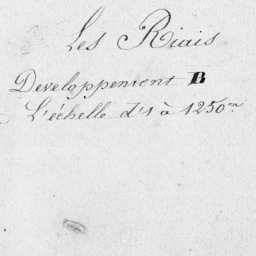 Les Riais
Developpement B
L'échelle d'1 à 1250m